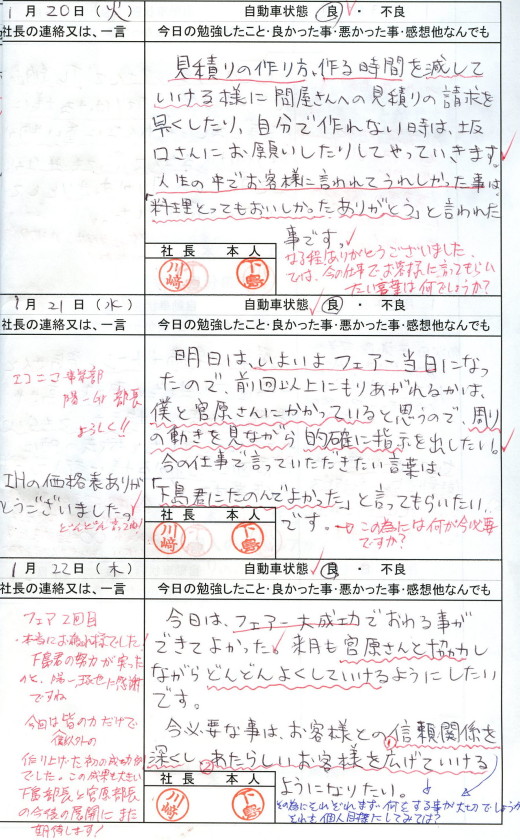 1月20日(火)
自動車状態 良 ・ 不良
社長の連絡又は、一言
今日の勉強したこと・良かった事・悪かった事・感想他なんでも
見積りの作り方、作る時間を減して
いける様に問屋さんへの見積りの請求を
早くしたり、自分で作れない時は、坂
口さんにお願いしたりしてやっていきます。
人生の中でお客様に言われてうれしかった事は
「料理とってもおいしかったありがとう」と言われた
事です。
なる程ありがとうございました。
では、今の仕事でお客様に言ってもらい
たい言葉は何でしょうか?
社長 本人
川崎 下島
1月21日(水)
自動車状態 良 ・ 不良
社長の連絡又は、一言
今日の勉強したこと・良かった事・悪かった事・感想他なんでも
エコニコ事業部
陽一 部長
よろしく!!
IHの価格表ありが
とうございましたっ!
明日は、いよいよフェアー当日になっ
たので、前回以上にもりあがれるかは、
僕と宮原さんにかかっていると思うので、周り
の動きを見ながら的確に指示を出したい。
今の仕事で言っていただきたい言葉は、
「下島君にたのんでよかった」と言ってもらいたい
です。
→この為には何が今必要
ですか?
社長 本人
川崎 下島
1月22日(木)
自動車状態 良 ・ 不良
社長の連絡又は、一言
今日の勉強したこと・良かった事・悪かった事・感想他なんでも
フェア2回目
本当にお疲れ様でした!
下島君の努力が実った
のと、陽一、弦也に感謝
ですね
今回は皆の力だけで
僕以外の
作り上げた初の成功例
でした。この成果は大きい
下島部長と宮原部長
の今後の展開にまた
期待します!
今日は、フェアー大成功でおわる事が
できてよかった!来月も宮原さんと協力し
ながらどんどんよくしていけるようにしたい
です。
今必要な事は、お客様との①信頼関係を
深くし、②あたらしいお客様を広げていける
ようになりたい。
その為にそれぞれまず何をする事が大切でしょうか
それを個人目標にしてみては?
社長 本人
川崎 下島